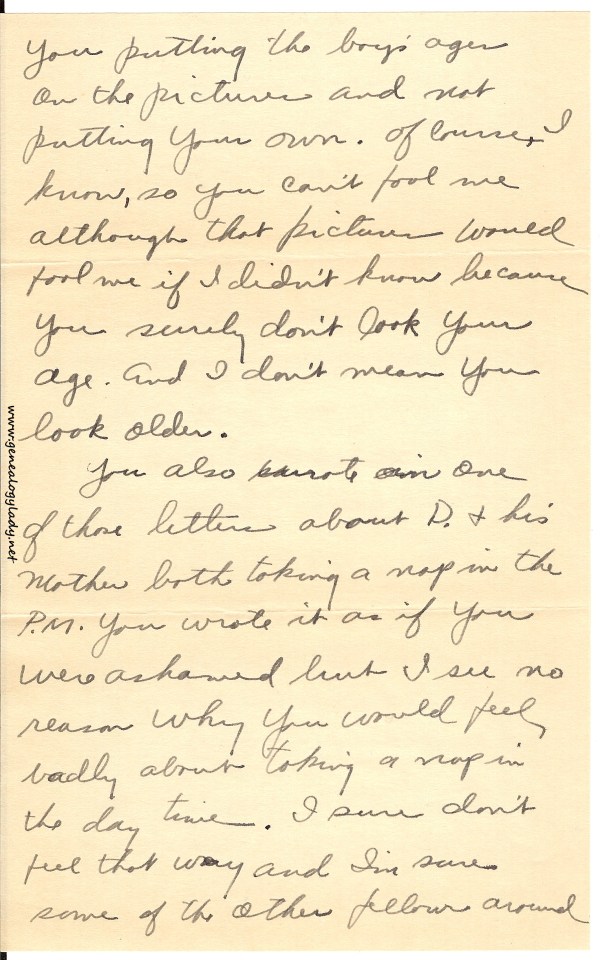 You putting the boy's ages
on the pictures and not
putting your own. Of course, I
know, so you can't fool me
although that picture would
fool me if I didn't know because
you surely don't look your
age. And I don't mean you
look older.
You also wrote in one
of those letters about D. & his
mother both taking a nap in the
P.M. You wrote it as if you
were ashamed but I see no
reason why you would feel
badly about taking a nap in
the day time. I sure don't
feel that way and I'm sure
some of the other fellows around
www.genealogylady.net